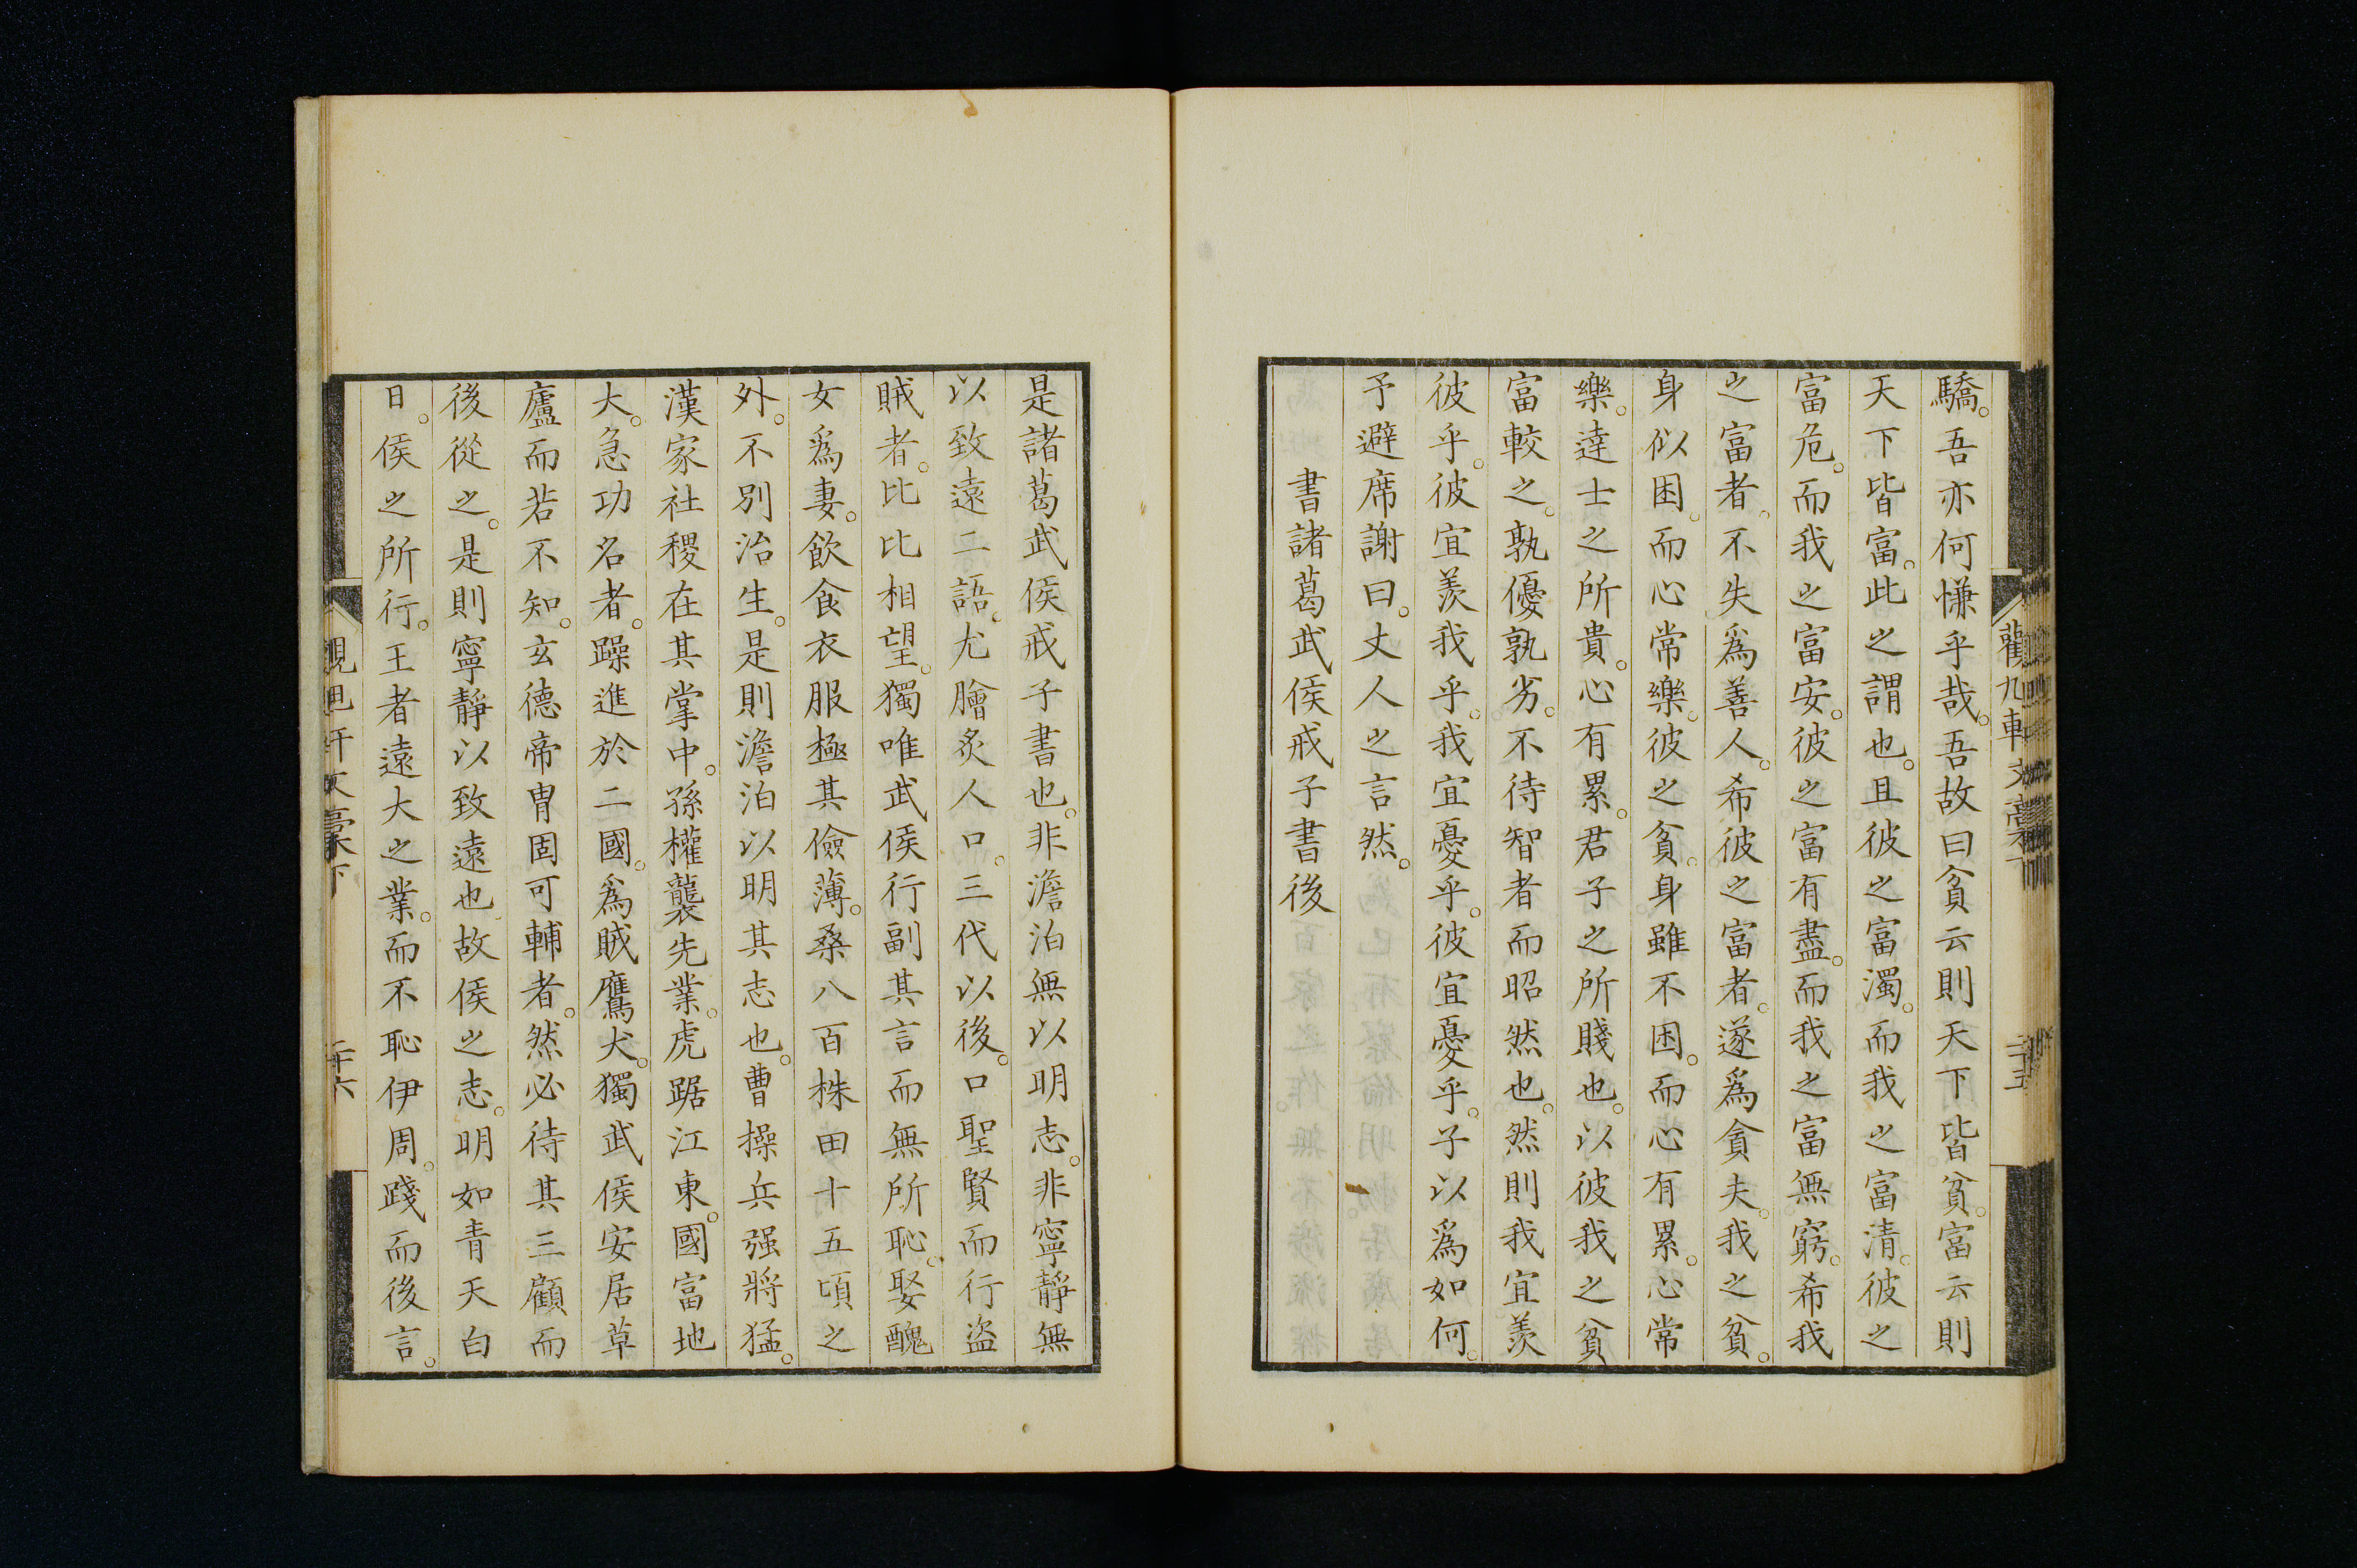 驕。吾亦何慊乎哉。吾故曰貧云則天下皆貧。富云則
天下皆富。此之謂也。且彼之富濁。而我之富清。彼之
富危。而我之富安。彼之富有盡。而我之富無窮。希我
之富者。不失爲善人。希彼之富者。遂爲貪夫。我之貧。
身似困。而心常樂。彼之貧。身雖不困。而心有累。心常
樂。達士之所貴。心有累。君子之所賤也。以彼我之貧
富較之。孰優孰劣。不待智者而昭然也。然則我宜羨
彼乎。彼宜羨我乎。我宜憂乎。彼宜憂乎。子以爲如何。
予避席謝曰。丈人之言然。
書諸葛武侯戒子書後
是諸葛武侯戒子書也。非澹泊無以明志。非寧靜無
以致遠二語。尤膾炙人口。三代以後。口聖賢而行盜
賊者。比比相望。獨唯武侯行副其言而無所恥。娶醜
女爲妻。飲食衣服極其儉薄。桑八百株田十五頃之
外。不別治生。是則澹泊以明其志也。曹操兵强將猛。
漢家社稷在其掌中。孫權襲先業。虎踞江東。國富地
大。急功名者。躁進於二國。爲賊鷹犬。獨武侯安居草
廬而若不知。玄德帝冑固可輔者。然必待其三顧而
後從之。是則寧靜以致遠也。故侯之志。明如青天白
日。侯之所行。王者遠大之業。而不恥伊周。踐而後言。
觀九軒文稾下
二十五
二十六